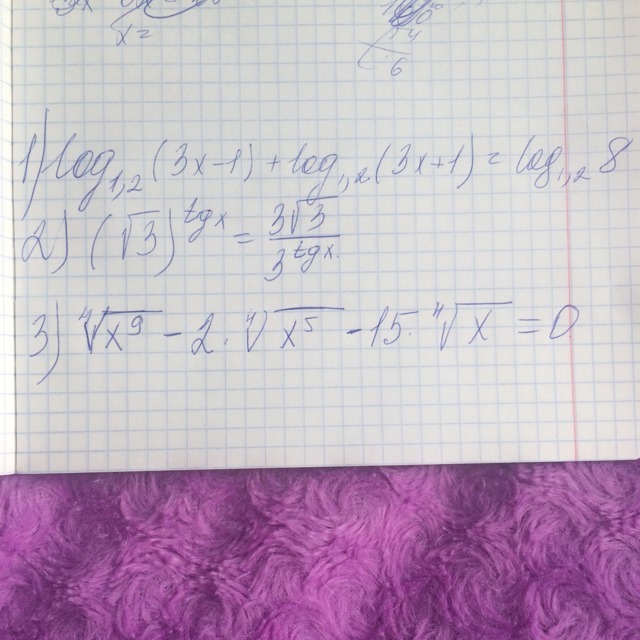 x =
6
1) log₁,₂(3x-1) + log₁,₂(3x+1) = log₁,₂8
2) (√3)^tgx = 3√3 / 3^tgx.
3) ⁴√x⁹ - 2·⁴√x⁵ - 15·⁴√x = 0